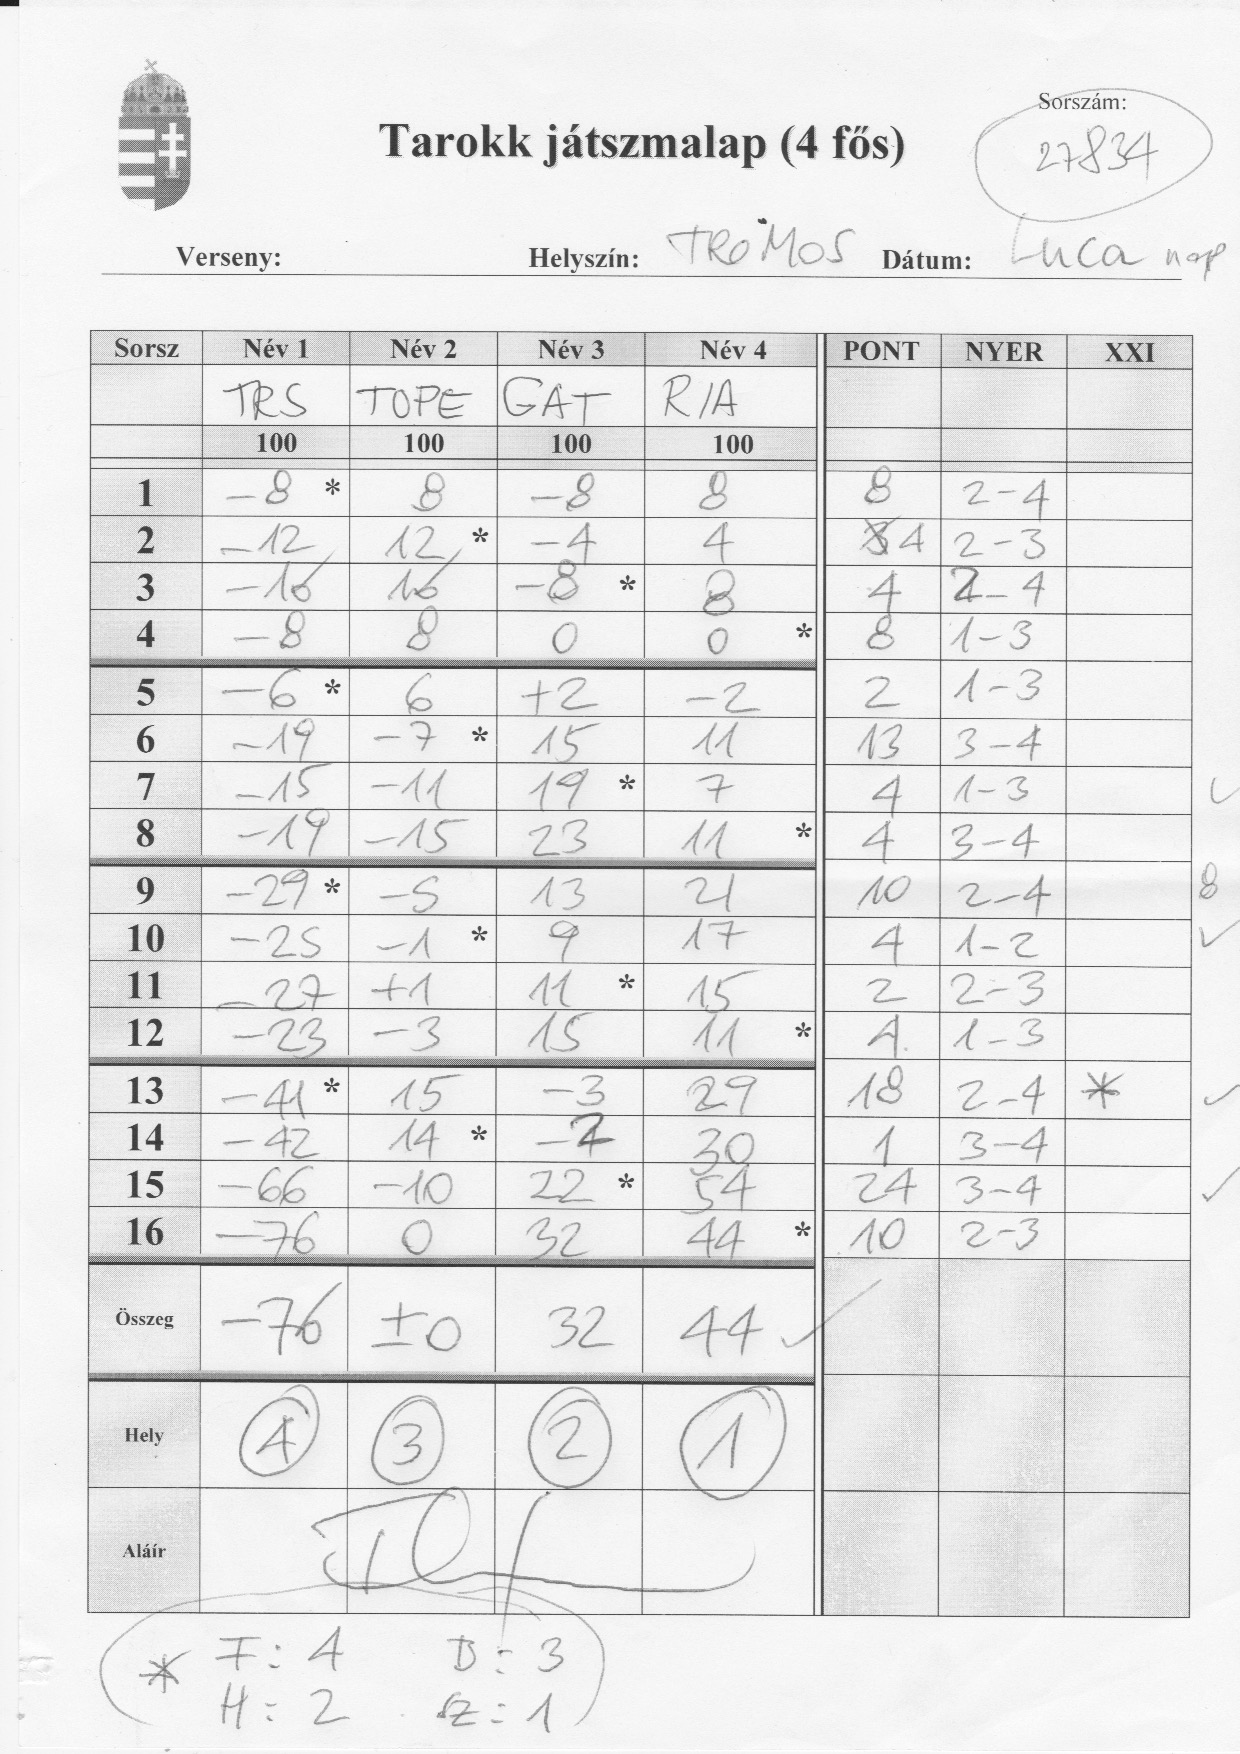 Sorszám:
Tarokk játszmalap (4 fős)
27834
Verseny: Helyszín: TRÖMOS Dátum: Luca nap
Sorsz Név 1 Név 2 Név 3 Név 4 PONT NYER XXI
TRS TOPE GAT R/A
100 100 100 100
1 -8 * 8 -8 8 8 2-4
2 -12 12 * -4 4 4 2-3
3 -16 16 -8 * 8 4 2-4
4 -8 8 0 0 * 8 1-3
5 -6 * 6 +2 -2 2 1-3
6 -19 -7 * 15 11 13 3-4
7 -15 -11 19 * 7 4 1-3 ✓
8 -19 -15 23 11 * 4 3-4
9 -29 * -5 13 21 10 2-4 8
10 -25 -1 * 9 17 4 1-2 ✓
11 -27 +1 11 * 15 2 2-3
12 -23 -3 15 11 * 4. 1-3
13 -41 * 15 -3 29 18 2-4 * ✓
14 -42 14 * -2 30 1 3-4
15 -66 -10 22 * 54 24 3-4 ✓
16 -76 0 32 44 * 10 2-3
Összeg -76 ±0 32 44 ✓
Hely 4 3 2 1
Aláír
* F: 4 D: 3
H: 2 Z: 1